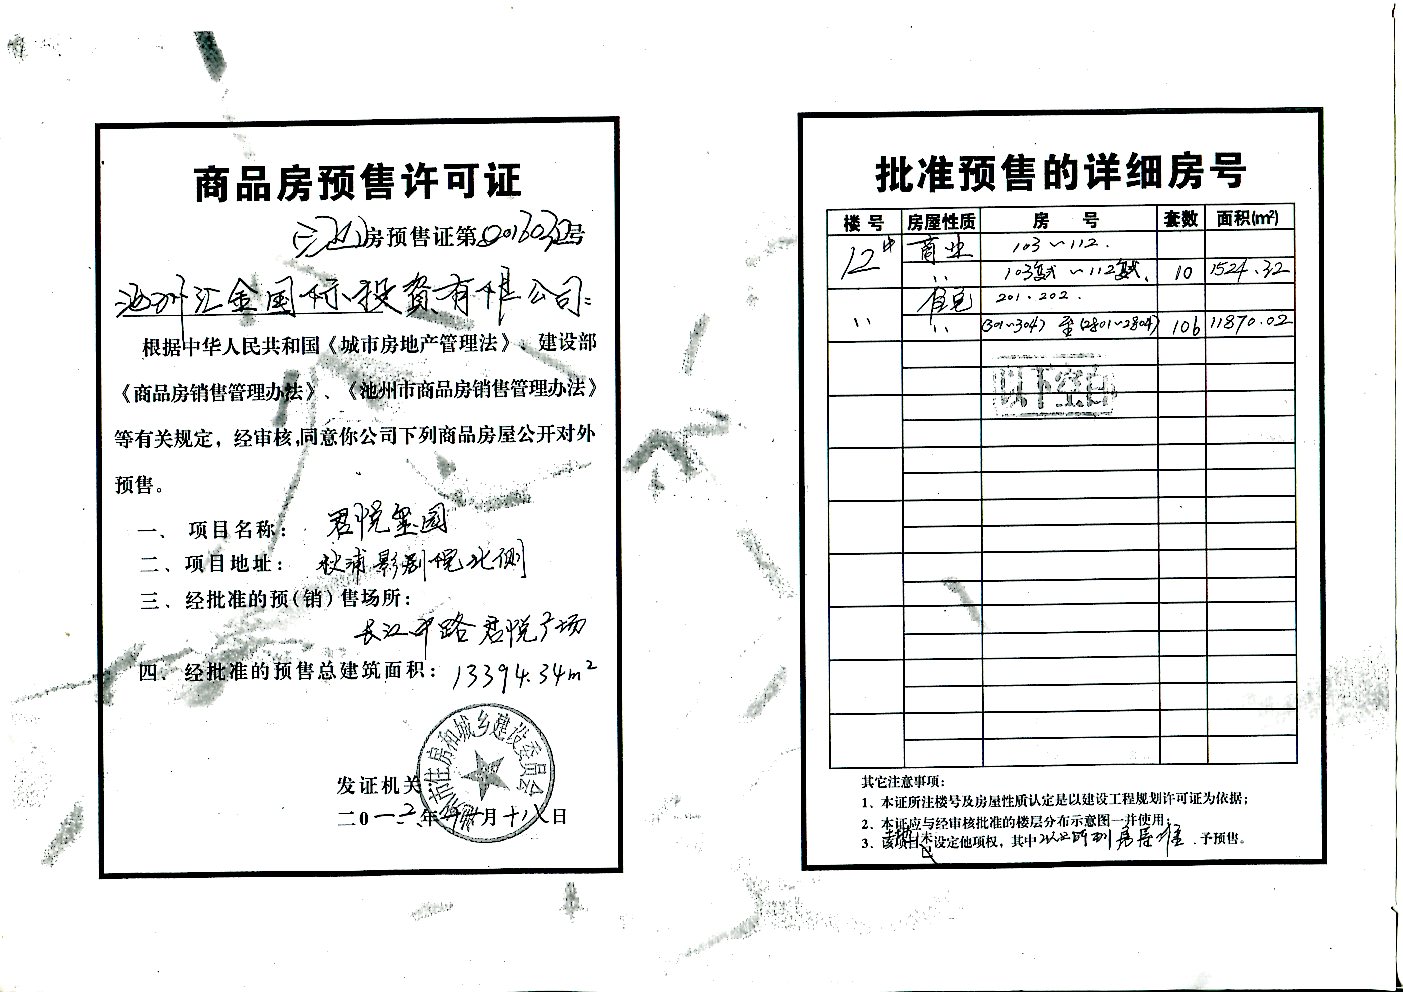 商品房预售许可证
房预售证第 号
池州汇金国际投资有限公司：
根据中华人民共和国《城市房地产管理法》、建设部
《商品房销售管理办法》、《池州市商品房销售管理办法》
等有关规定，经审核,同意你公司下列商品房屋公开对外
预售。
一、项目名称： 君悦玺园
二、项目地址： 秋浦影剧院北侧
三、经批准的预(销)售场所：
长江中路君悦广场
四、经批准的预售总建筑面积： 13394.34m²
市住房和城乡建设委员会
发证机关
二0一 年 月十八日
批准预售的详细房号
楼号 房屋性质 房号 套数 面积(m²)
12# 商业 103～112.
〃 103复式～112复式. 10 1524.32
住宅 201.202.
〃 〃 (301～304) 至(2801～2804) 106 11870.02
以下空白
其它注意事项：
1、本证所注楼号及房屋性质认定是以建设工程规划许可证为依据；
2、本证应与经审核批准的楼层分布示意图一并使用；
3、该项目 未 设定他项权，其中 以上所列房屋准 予预售。
已